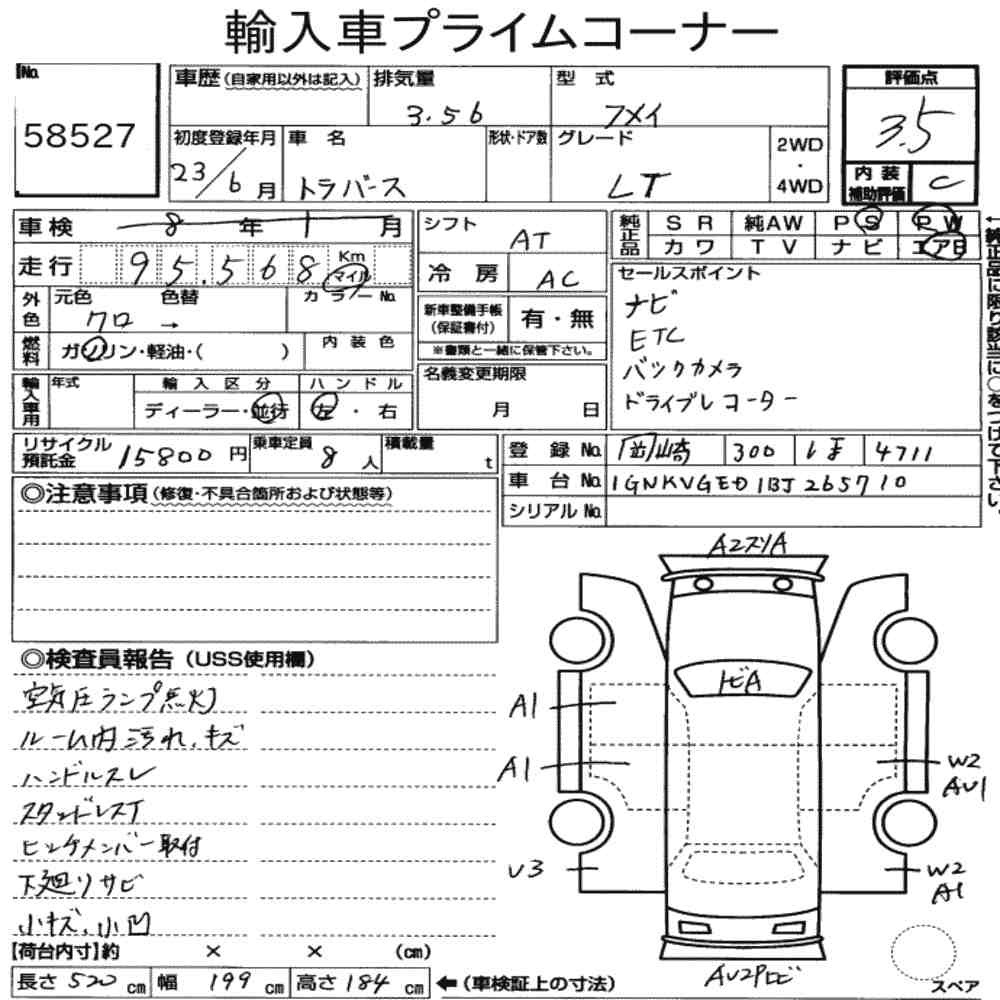 輸入車プライムコーナー
No. 58527
車歴 (自家用以外は記入) 排気量 3.56 型式 フメイ
評価点 3.5
初度登録年月 23/6月 車名 トラバース 形状・ドア数 グレード LT 2WD・4WD
内装補助評価 C
車検 8年1月
走行 95.568 Km マイル
シフト AT
冷房 AC
純正品 SR 純AW PS PW
カワ TV ナビ エアB
←純正品に限り該当に○をつけて下さい。
外色 元色 クロ → 色替 カラーNo.
燃料 ガソリン・軽油・( ) 内装色
新車整備手帳(保証書付) 有・無
※書類と一緒に保管下さい。
セールスポイント
ナビ
ETC
バックカメラ
ドライブレコーダー
輸入車用 年式 輸入区分 ディーラー・並行 ハンドル 左・右
名義変更期限 月 日
リサイクル預託金 15800円 乗車定員 8人 積載量 t
登録No. 岡崎 300 4711
車台No. 1GNKVGED1BJ265710
シリアルNo.
◎注意事項 (修復・不具合箇所および状態等)
◎検査員報告 (USS使用欄)
空気圧ランプ点灯
ルーム内汚れ、キズ
ハンドルスレ
スタッドレスT
ヒッチメンバー取付
下廻りサビ
小キズ、小凹
A2スリA
トビA
A1
A1
W2
AU1
U3
W2
A1
AU2Pロビ
スペア
【荷台内寸】約 × × (cm)
長さ 520 cm 幅 199 cm 高さ 184 cm ←(車検証上の寸法)